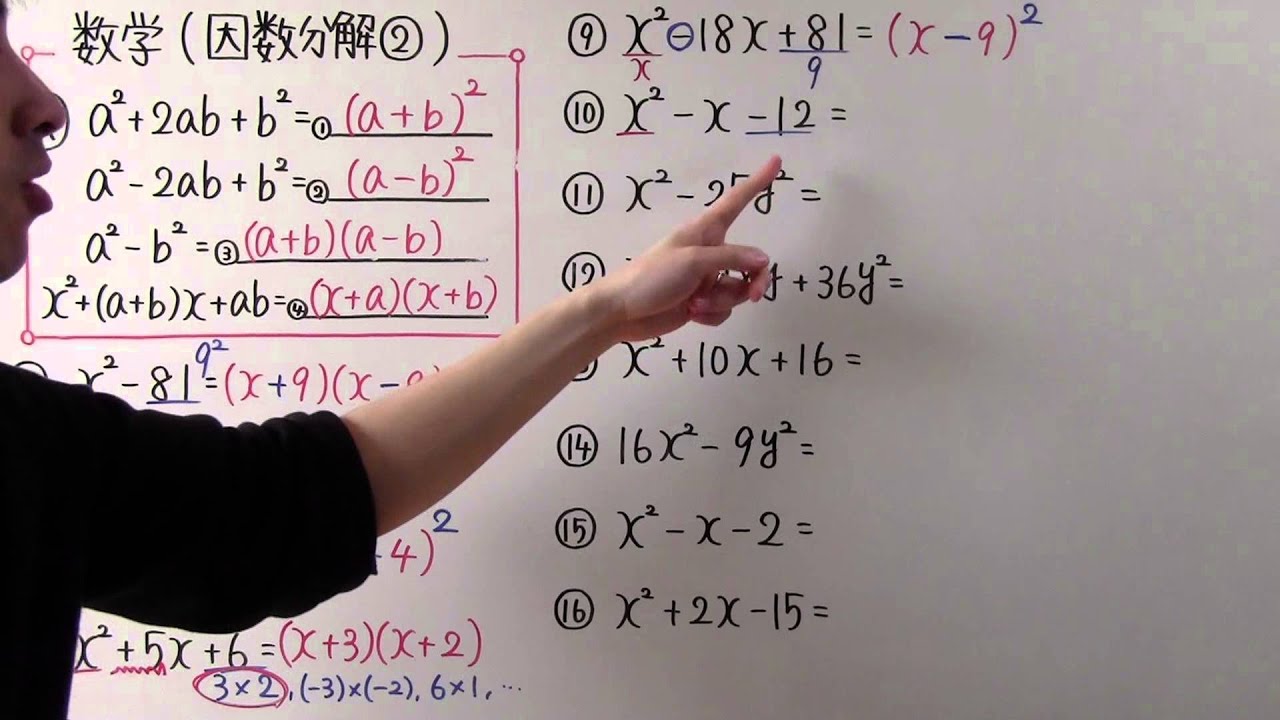 数学(因数分解②)
a²+2ab+b²=①(a+b)²
a²-2ab+b²=②(a-b)²
a²-b²=③(a+b)(a-b)
x²+(a+b)x+ab=④(x+a)(x+b)
x²-81=(x+9)(x-
9²
4)²
x²+5x+6=(x+3)(x+2)
3×2,(-3)×(-2),6×1,…
⑨ x²-18x+81=(x-9)²
x 9
⑩ x²-x-12=
⑪ x²-25y²=
⑫ y+36y²=
x²+10x+16=
⑭ 16x²-9y²=
⑮ x²-x-2=
⑯ x²+2x-15=